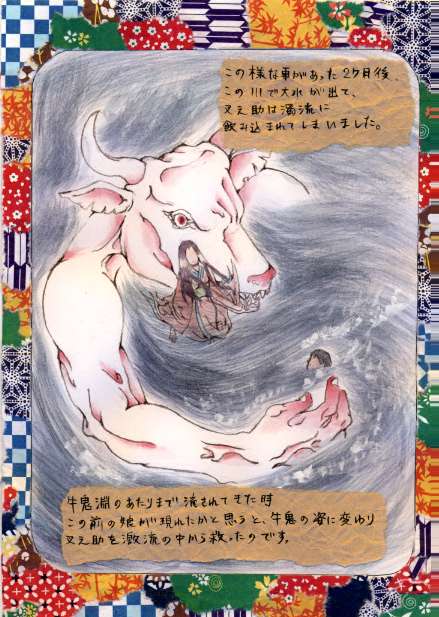 この様な事があった2ヶ月後、
この川で大水が出て、
又之助は濁流に
飲み込まれてしまいました。
牛鬼淵のあたりまで流されてきた時
この前の娘が現れたかと思うと、牛鬼の姿に変わり
又之助を激流の中から救ったのです。